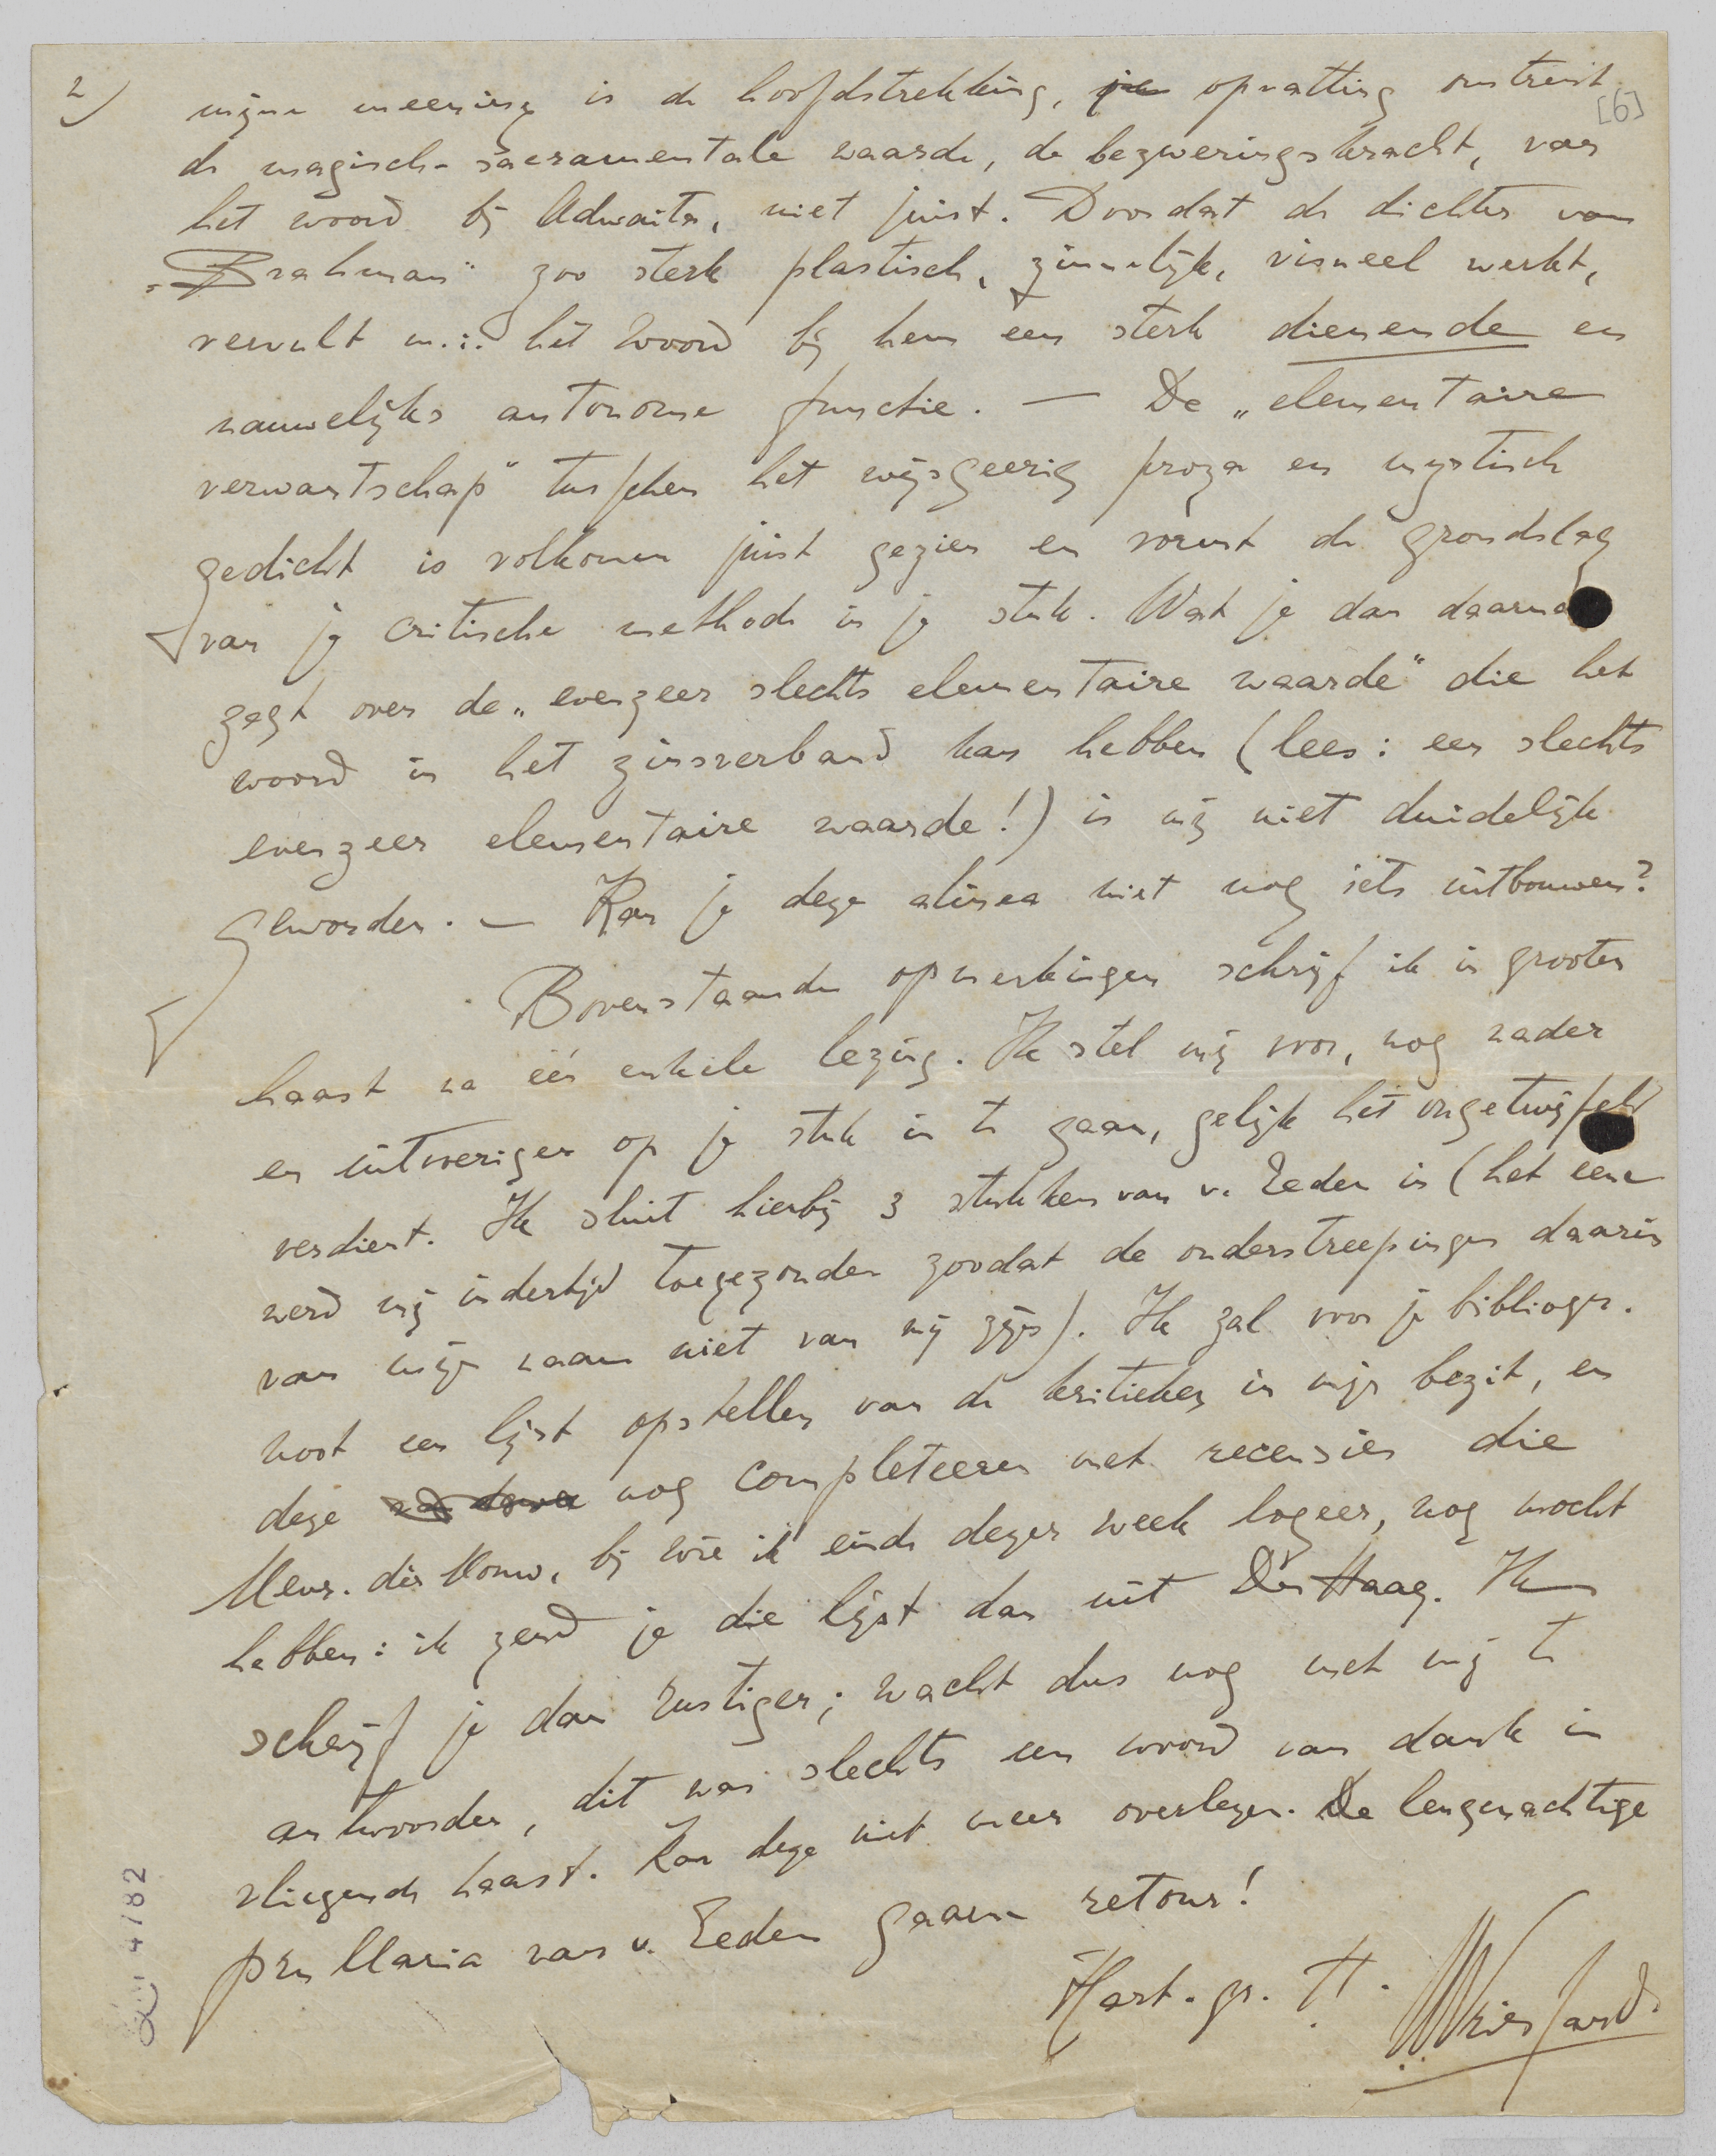 2)
[6]
mijne meening is de hoofdstrekking, je opvatting omtrent
de magisch-sacramentale waarde, de bezweringskracht, van
het woord bij Adwaita, niet juist. Doordat de dichter van
„Brahman" zoo sterk plastisch, zinnelijk, visueel werkt,
vervult m.i. het woord bij hem een sterk dienende en
nauwelijks autonome functie. — De „elementaire
verwantschap" tusschen het wijsgeerig proza en mystisch
gedicht is volkomen juist gezien en vormt de grondslag
van je critische methode in je stuk. Wat je dan daarna
zegt over de „evenzeer slechts elementaire waarde" die het
woord in het zinsverband kan hebben (lees: een slechts
evenzeer elementaire waarde!) is mij niet duidelijk
geworden. — Kan je deze alinea niet nog iets uitbouwen?
Bovenstaande opmerkingen schrijf ik in grooten
haast na één enkele lezing. Ik stel mij voor, nog nader
en uitvoeriger op je stuk in te gaan, gelijk het ongetwijfeld
verdient. Ik sluit hierbij 3 stukken van v. Eeden in (het eene
werd mij indertijd toegezonden zoodat de onderstreepingen daarin
van mijn naam niet van mij zijn). Ik zal voor je bibliogr.
noot een lijst opstellen van de kritieken in mijn bezit, en
deze nog completeeren met recensies die
Mevr. dèr Mouw, bij wie ik einde dezer week logeer, nog mocht
hebben: ik zend je die lijst dan uit Den Haag. Ik
schrijf je dan rustiger; wacht dus nog met mij te
antwoorden, dit was slechts een woord van dank in
vliegende haast. Kan deze niet meer overlezen. De leugenachtige
prul Maria van v. Eeden gaarne retour!
Hart. gr. tt.
Vriesland.
4782